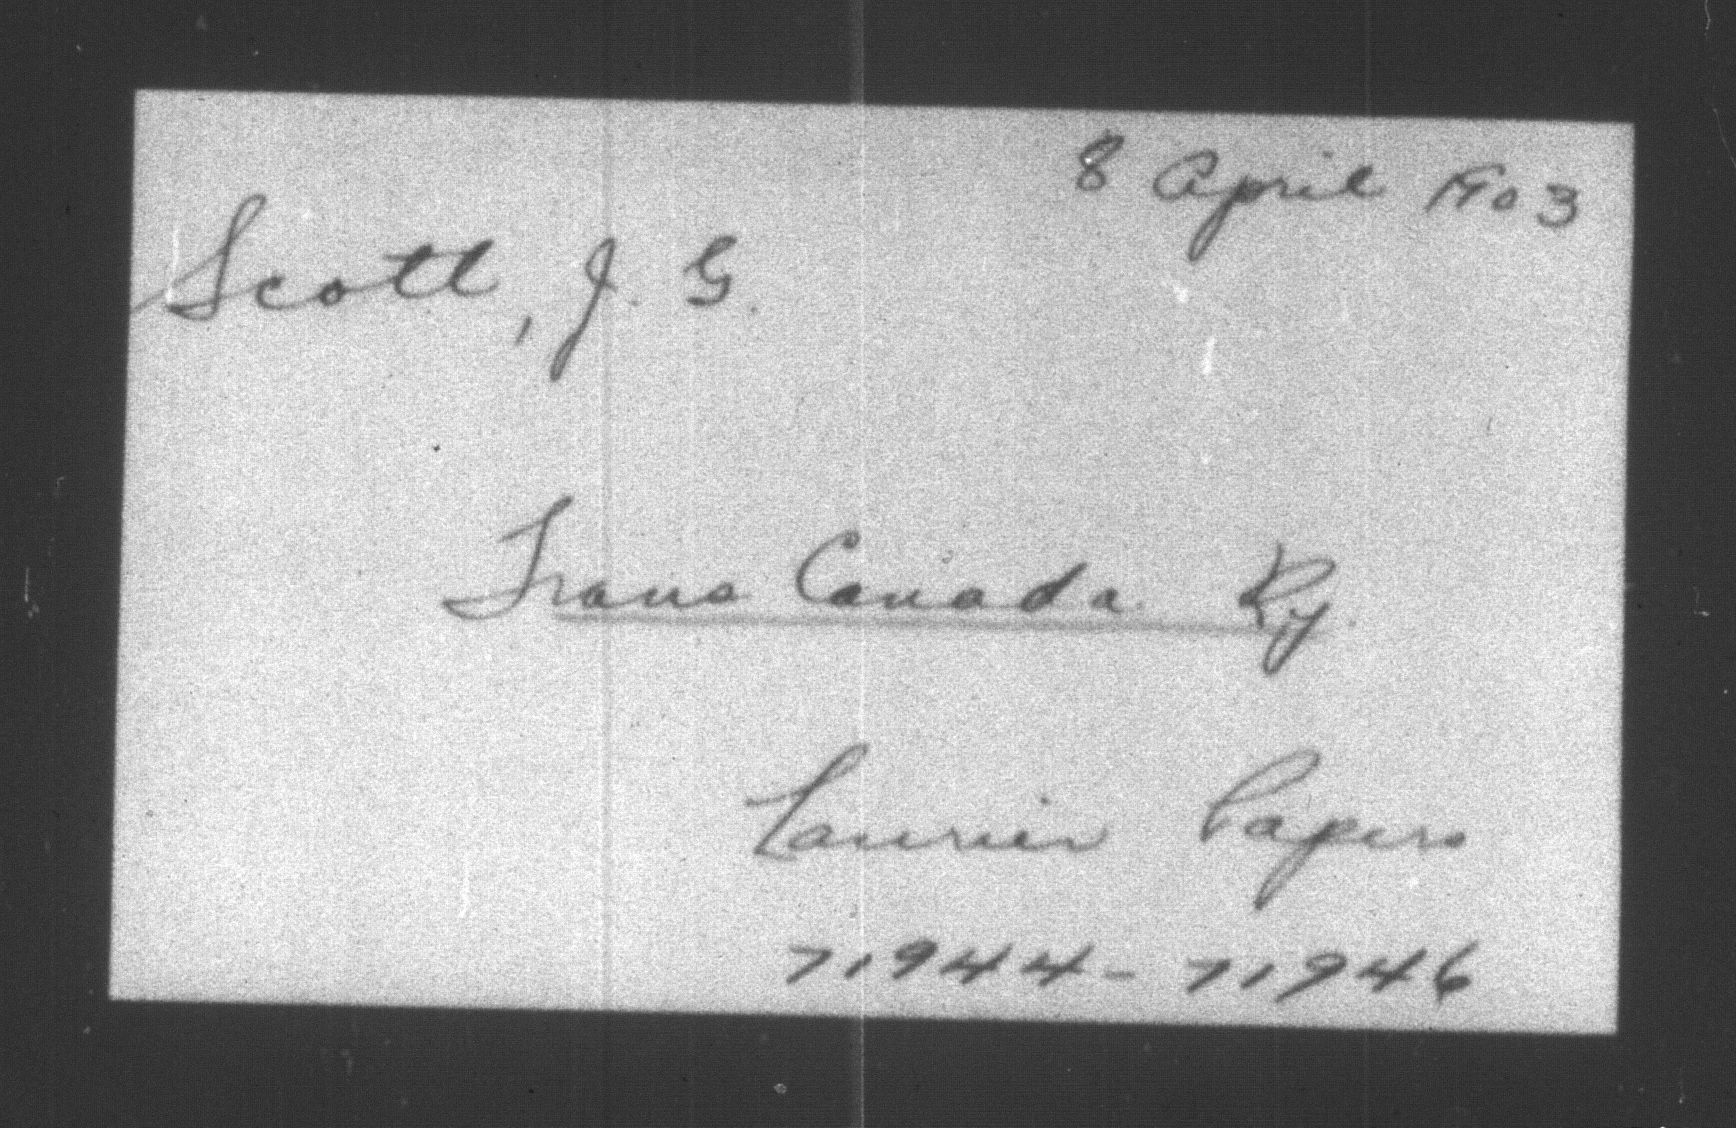 8 April 1903
Scott, J. G.
Trans Canada Ry.
Laurier Papers
71944-71946